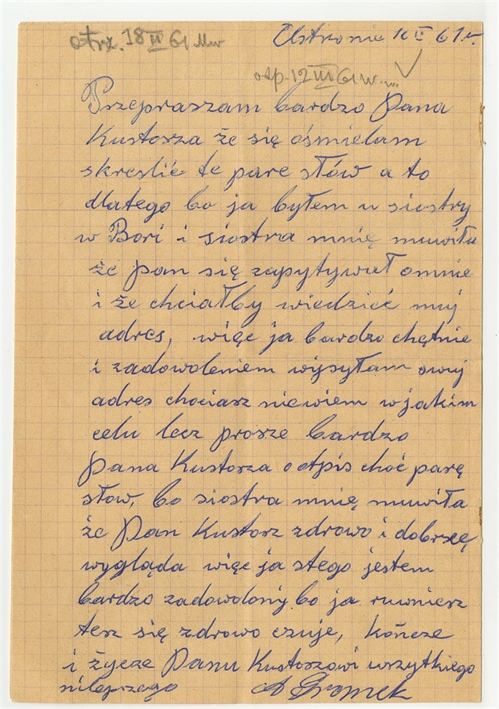 otrz. 18 II 61 Mw
Ustronie 16 II 61 r.
odp. 12 III 61 W.
Przepraszam bardzo Pana
Kustorza że się ośmielam
skreslić te pare słów a to
dlatego bo ja byłem u siostry
w Bori i siostra mnię muwiła
że pan się zapytywał omnie
i że chciałby wiedzić muj
adres, więc ja bardzo chętnie
i zadowoleniem wysyłam swuj
adres chociasz niewiem w jakim
celu lecz prosze bardzo
Pana Kustorza o otpis choć parę
słow, bo siostra mnię muwiła
że Pan Kustorz zdrowo i dobrzę
wygląda więc ja stego jestem
bardzo zadowolony, bo ja ruwniesz
tesz się zdrowo czuje, kończe
i życze Panu Kustoszowi wszytkiego
nilepszego